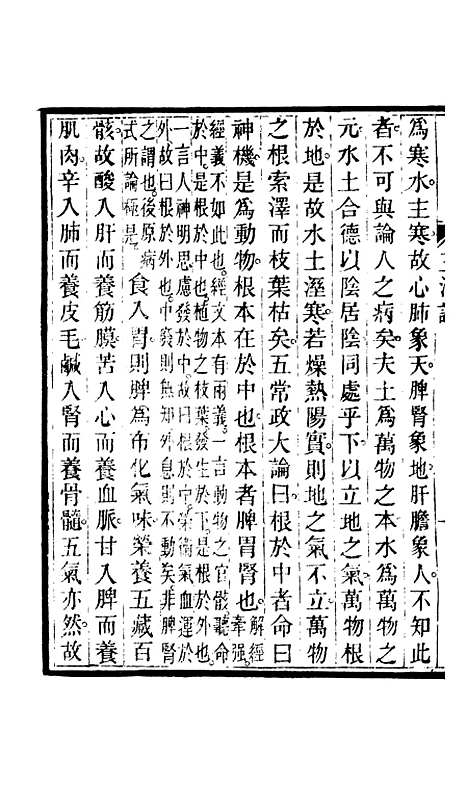 爲寒水主寒故心肺象天脾腎象地肝膽象人不知此
者不可與論人之病矣夫土爲萬物之本水爲萬物之
元水土合德以陰居陰同處乎下以立地之氣萬物根
於地是故水土溼寒若燥熱陽實則地之氣不立萬物
之根索澤而枝葉枯矣五常政大論曰根於中者命曰
神機是爲動物根本在於中也根本者脾胃腎也解經牽强
經義不如此也經文本有兩義一言動物之官骸聽命
於中是根於中也植物之枝葉發生於下是根於外也
一言人神明思慮發於中故曰根於中榮衞氣血運於
外故曰根於外也中窽則無知外息則不動矣非脾腎
之謂也後原病
式所論極是食入胃則脾爲布化氣味榮養五藏百
骸故酸入肝而養筋膜苦入心而養血脈甘入脾而養
肌肉辛入肺而養皮毛鹹入腎而養骨髓五氣亦然故